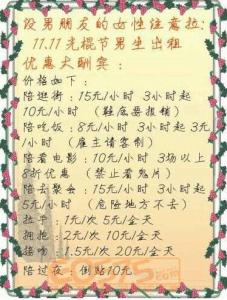 没男朋友的女性注意拉:
11.11光棍节男生出租
优惠大酬宾:
价格如下:
陪逛街:15元/小时 3小时起
10元/小时 (鞋底要报销)
陪吃饭:8元/小时 3小时起3元
/小时 (雇主请客制)
陪看电影:10元/小时 3场以上
8折优惠 (禁止看鬼片)
陪去聚会:15元/小时 3小时起
5元/小时 (危险地方不去)
拉手:1元/次 5元/全天
拥抱:2元/次 10元/全天
接吻:1.5元/次 20元/全天
陪过夜:倒贴10元